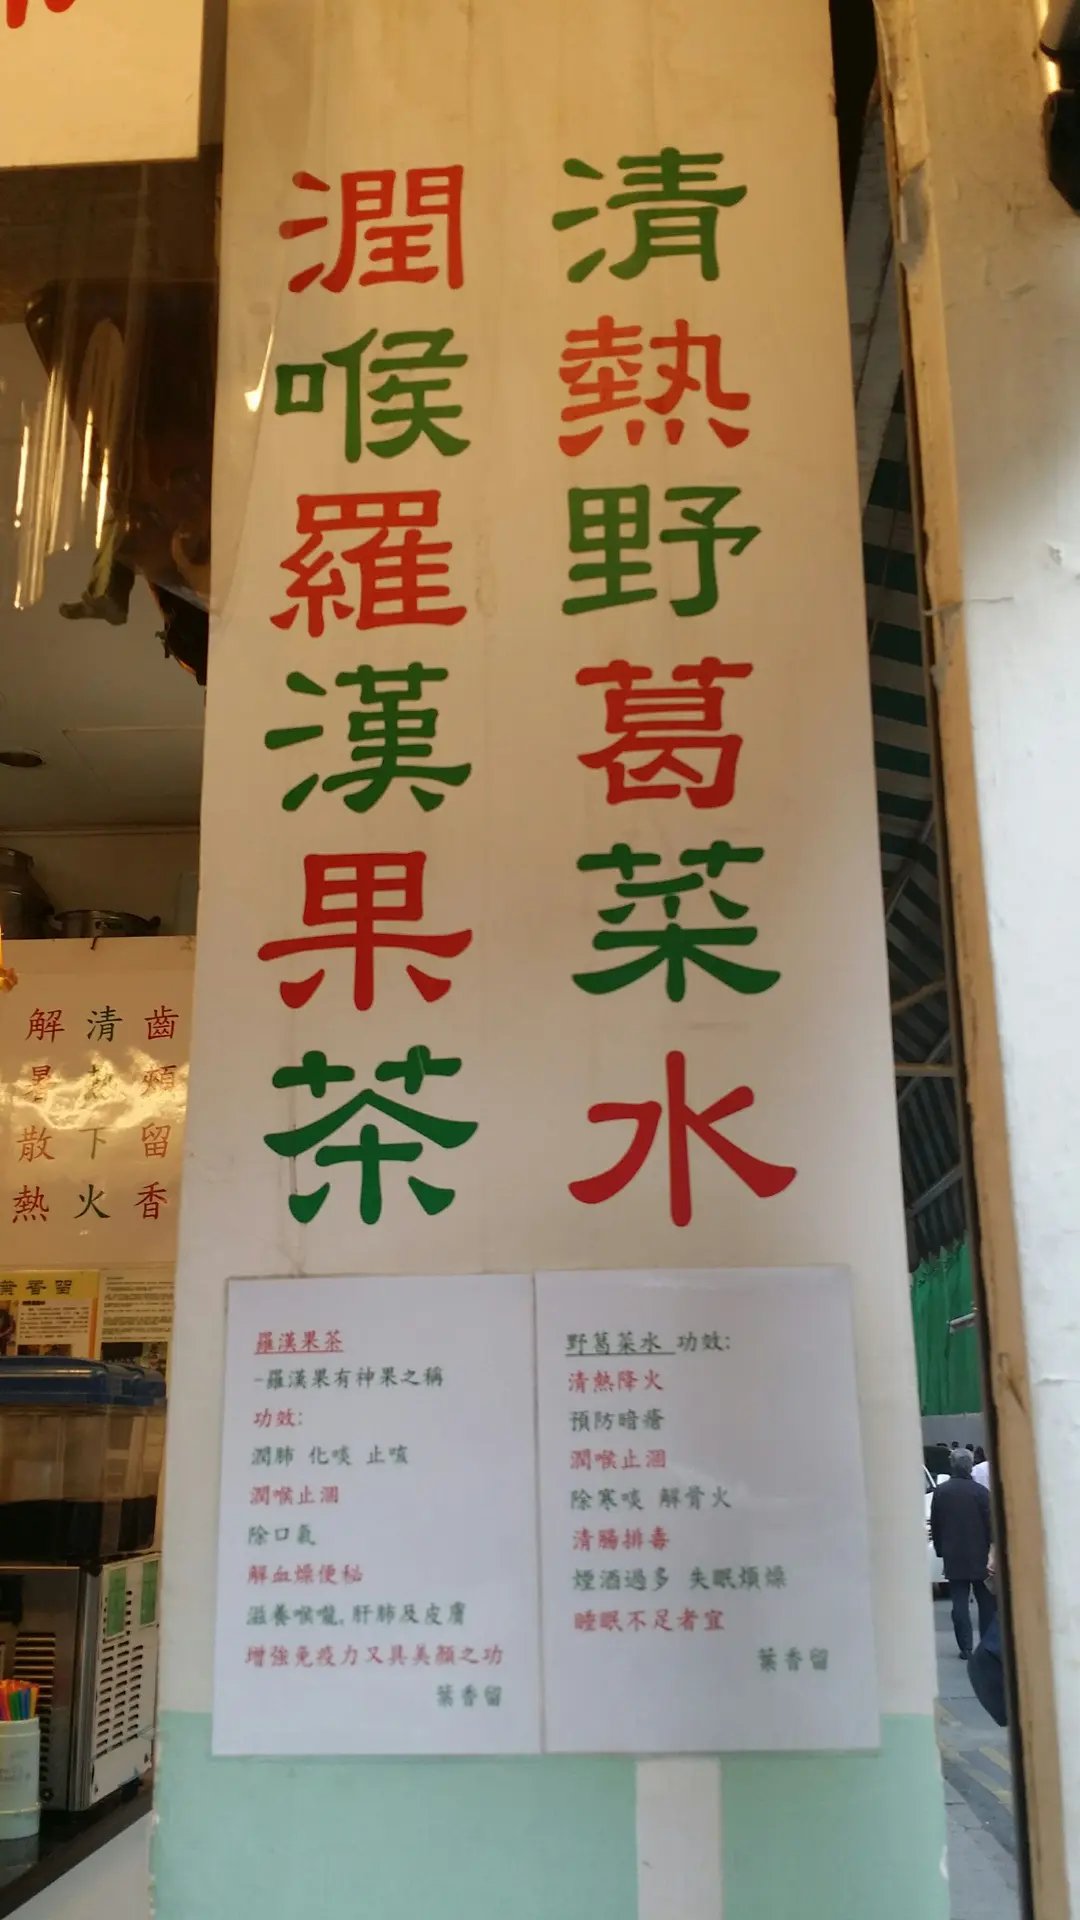 清熱野葛菜水
潤喉羅漢果茶
齒頰留香
清熱下火
解暑散熱
羅漢果茶
-羅漢果有神果之稱
功效:
潤肺 化啖 止咳
潤喉止涸
除口氣
解血燥便秘
滋養喉嚨,肝肺及皮膚
增強免疫力又具美顏之功
葉香留
野葛菜水 功效:
清熱降火
預防暗瘡
潤喉止涸
除寒啖 解骨火
清腸排毒
煙酒過多 失眠煩燥
睡眠不足者宜
葉香留
葉香留